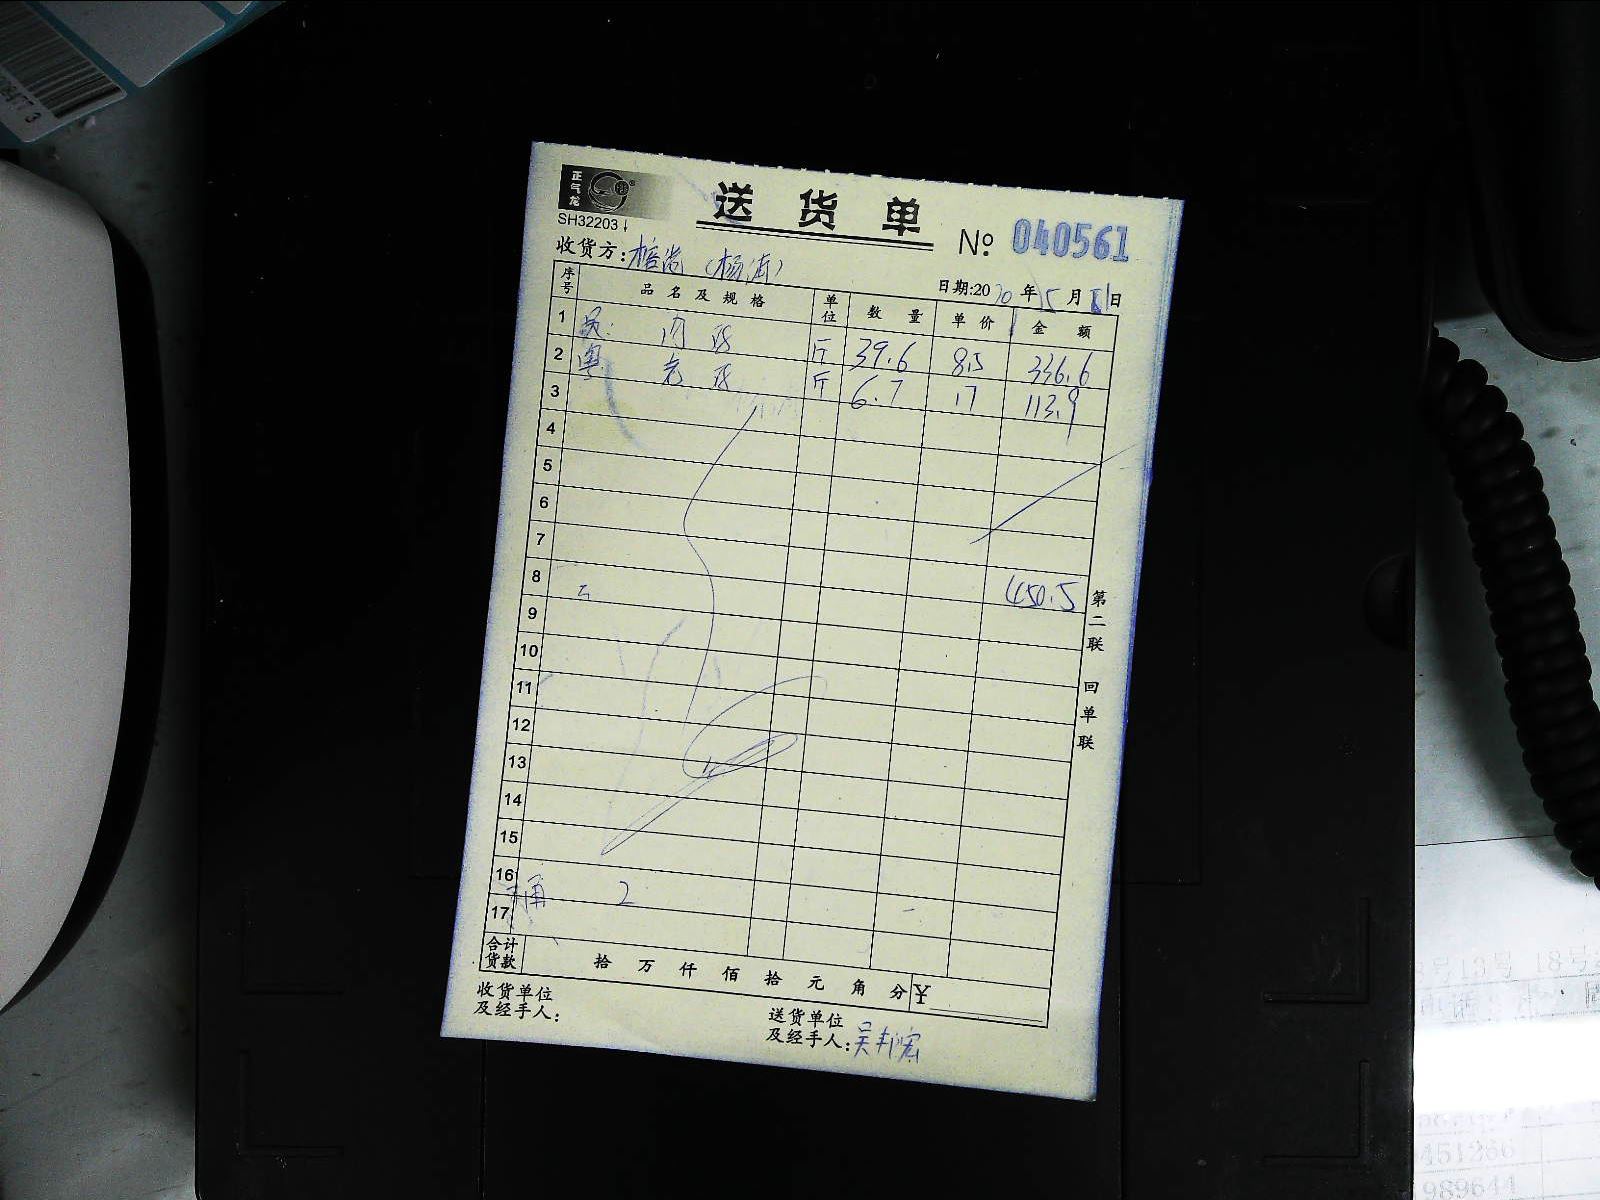 正气龙
送货单
SH32203
№ 040561
收货方:榕尚（杨浦）
日期:20 20 年 5 月 日
序号 品名及规格 单位 数量 单价 金额
1 吴: 肉 斤 39.6 8.5 336.6
2 粤 老 斤 6.7 17 113.9
3
4
5
6
7
8 450.5
9
10
11
12
13
14
15
16
17
2
合计货款 拾 万 仟 佰 拾 元 角 分 ¥
收货单位
及经手人:
送货单位
及经手人:吴邦宏
第二联 回单联
18号
451266
989644